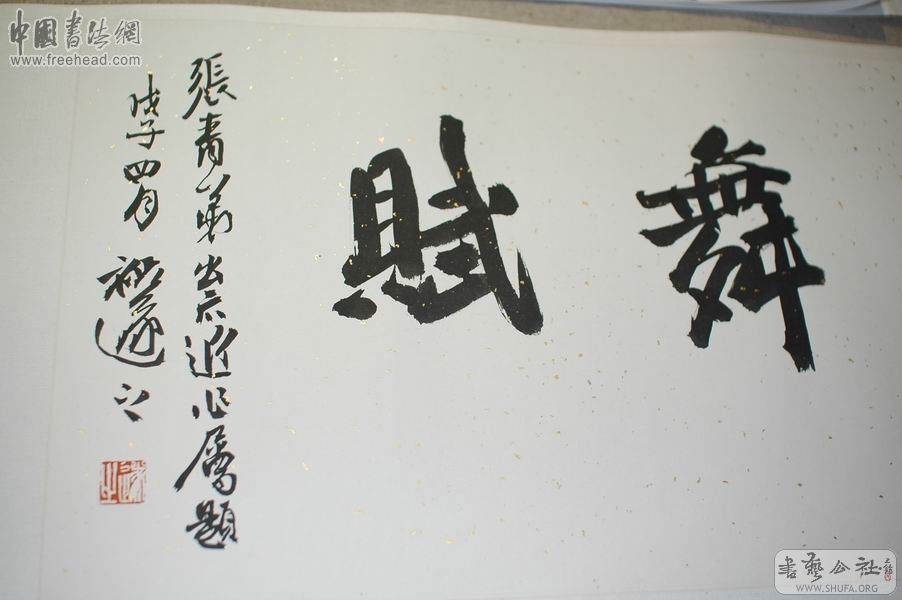 舞賦
張青弟出示近作屬題
戊子四月
中國書法網
www.freehead.com
書藝公社
WWW.SHUFA.ORG